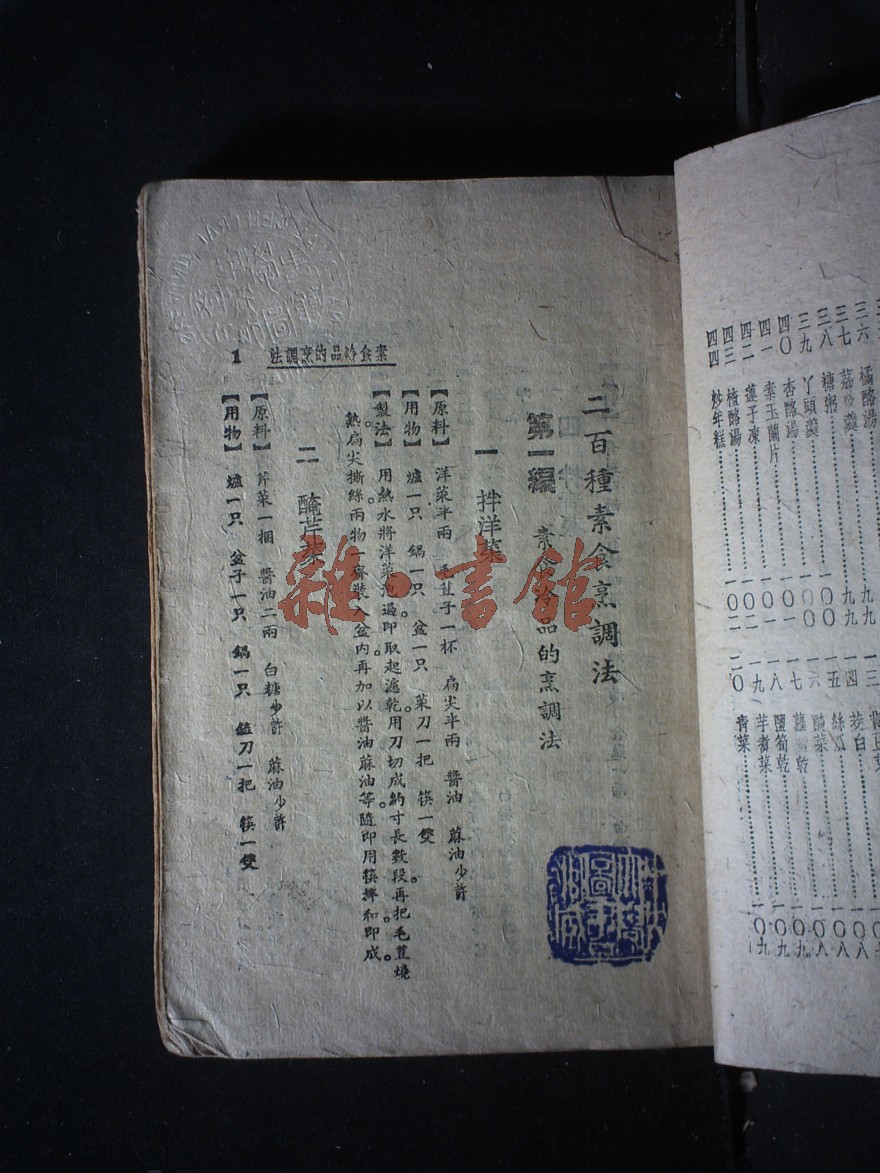 二百種素食烹調法
第一編 素食冷品的烹調法
一 拌洋菜
【原料】 洋菜半兩 毛荳子一杯 扁尖半兩 醬油 蔴油少許
【用物】 爐一只 鍋一只 盆一只 菜刀一把 筷一雙
【製法】 用熱水將洋菜泡過即取起濾乾用刀切成約寸長數段再把毛荳燒
熟扁尖撕絲兩物一齊裝入盆內再加以醬油蔴油等隨即用筷拌和即成。
二 醃芹菜
【原料】 芹菜一捆 醬油二兩 白糖少許 蔴油少許
【用物】 爐一只 盆子一只 鍋一只 菜刀一把 筷一雙
素食冷品的烹調法
1
橘酪湯
三七 荔枝羹 九九
三八 糖粥 一〇〇
三九 丫頭羹 一〇〇
四〇 杏酪湯
四一 素玉蘭片 一〇〇
四二 蓮子凍 一〇一
四三 楂酪湯
四四 炒年糕 一〇二
四 茭白
五 絲瓜
六 醃菜
八 鹽筍乾
九 芋艿菜
一〇 青菜
雜·書館